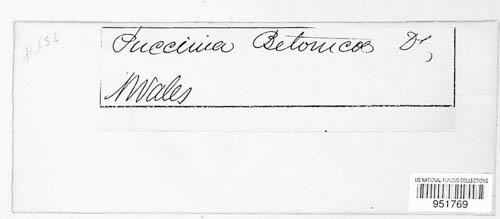 Puccinia Betonicae Dc,
N Wales
US NATIONAL FUNGUS COLLECTIONS
951769